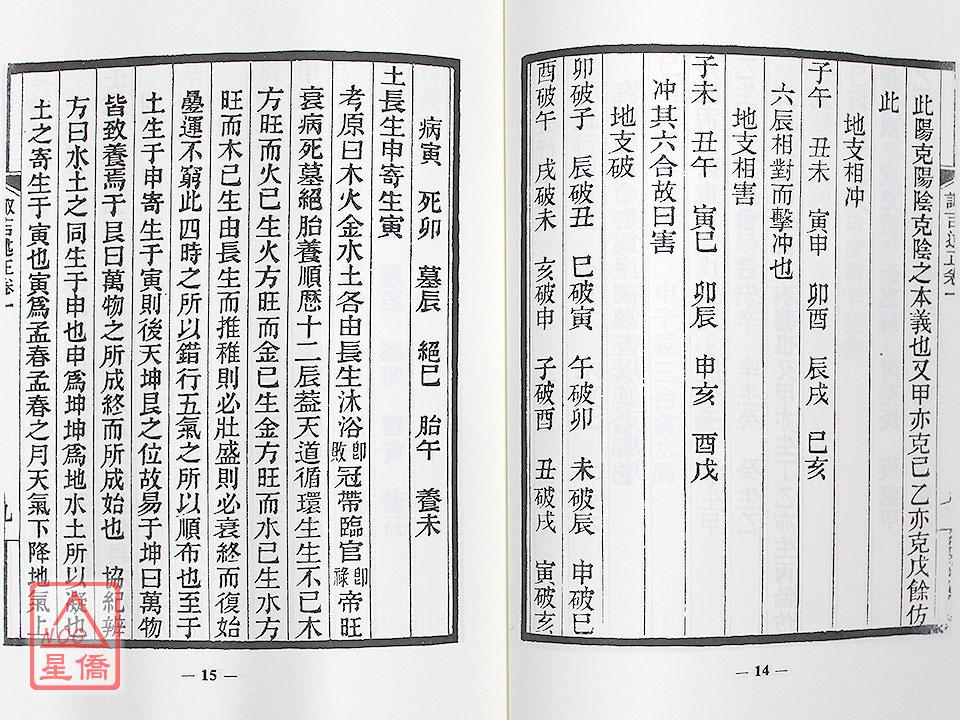 此陽克陽陰克陰之本義也又甲亦克己乙亦克戊餘仿
此
地支相冲
子午 丑未 寅申 卯酉 辰戌 巳亥
六辰相對而擊冲也
地支相害
子未 丑午 寅巳 卯辰 申亥 酉戌
冲其六合故曰害
地支破
卯破子 辰破丑 巳破寅 午破卯 未破辰 申破巳
酉破午 戌破未 亥破申 子破酉 丑破戌 寅破亥
— 14 —
病寅 死卯 墓辰 絕巳 胎午 養未
土長生申寄生寅
考原曰木火金水土各由長生沐浴卽敗冠帶臨官卽祿帝旺
衰病死墓絕胎養順歷十二辰葢天道循環生生不已木
方旺而火已生火方旺而金已生金方旺而水已生水方
旺而木已生由長生而推稚則必壯盛則必衰終而復始
曡運不窮此四時之所以錯行五氣之所以順布也至于
土生于申寄生于寅則後天坤艮之位故易于坤曰萬物
皆致養焉于艮曰萬物之所成終而所成始也 協紀辨
方曰水土之同生于申也申爲坤坤爲地水土所以凝也
土之寄生于寅也寅爲孟春孟春之月天氣下降地氣上
九
— 15 —
NCC
星僑